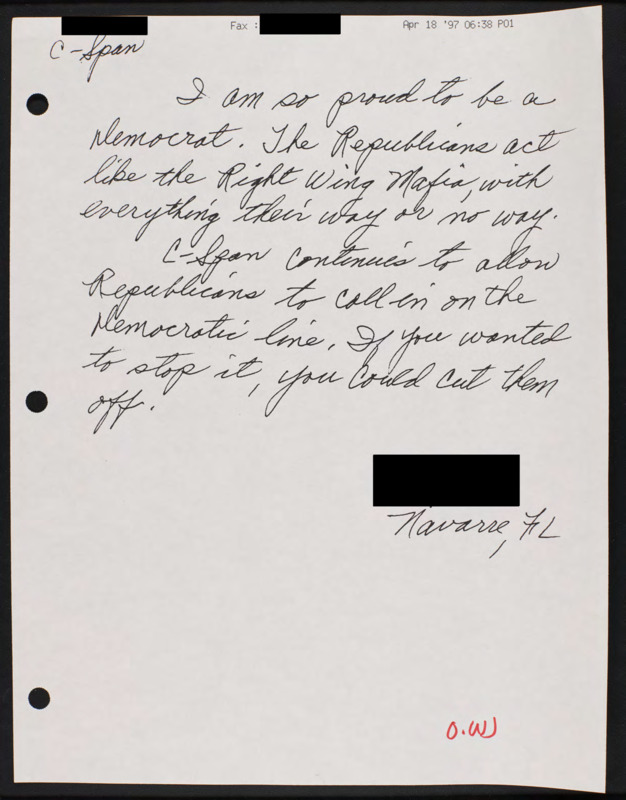 Fax : Apr 18 '97 06:38 P01
C-Span
I am so proud to be a
Democrat. The Republicans act
like the Right Wing Mafia, with
everything their way or no way.
C-Span continues to allow
Republicans to call in on the
Democratic line. If you wanted
to stop it, you could cut them
off.
Navarre, FL
O.W